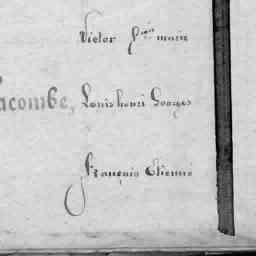 Victor fçois marie
Lacombe, Louis henri Georges
François Etienne